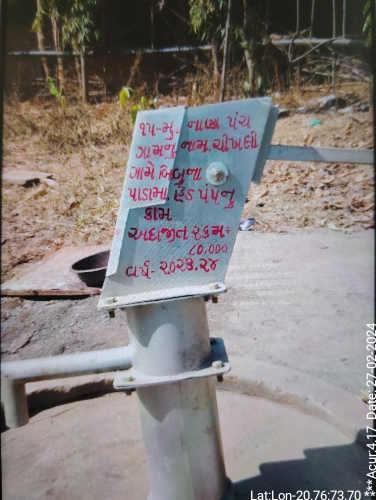 ૧૫-મુ. નાણા પંચ
ગામનું નામ. ચીખલી
ગામે બિબુના
પાડામા. હેંડ પંપનુ
કામ
અંદાજીત રકમ÷
૮૦,૦૦૦
વર્ષ- ૨૦૨૩.૨૪
Lat:Lon-20.76:73.70
***Acur:4.17 Date: 27-02-2024